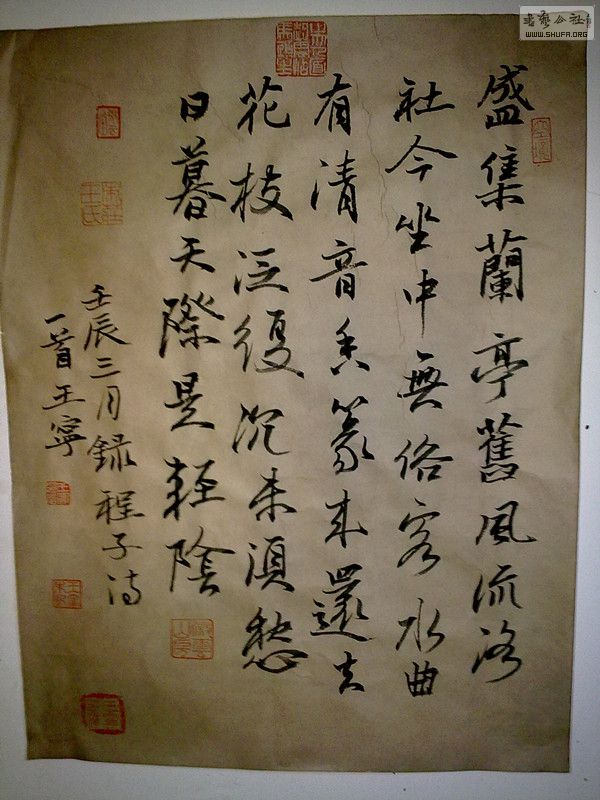 盛集蘭亭舊風流洛
社今坐中無俗客水曲
有清音香篆来還去
花枝泛復沉未須愁
日暮天際是輕陰
壬辰三月録程子诗
一首王寧
WWW.SHUFA.ORG